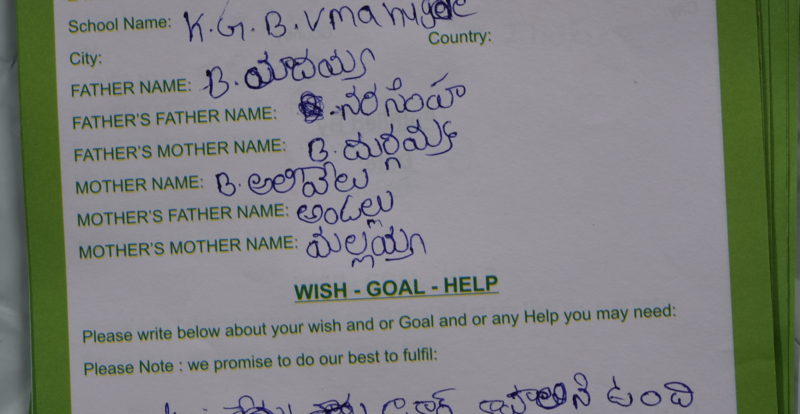 School Name: K.G.B.V manugode
City: Country:
FATHER NAME: B. యాదయ్య
FATHER'S FATHER NAME: B. నరసింహ
FATHER'S MOTHER NAME: B. దుర్గమ్మ
MOTHER NAME: B. అలివేలు
MOTHER'S FATHER NAME: అండాల్లు
MOTHER'S MOTHER NAME: మల్లయ్య
WISH - GOAL - HELP
Please write below about your wish and or Goal and or any Help you may need:
Please Note : we promise to do our best to fulfil:
ఉంది